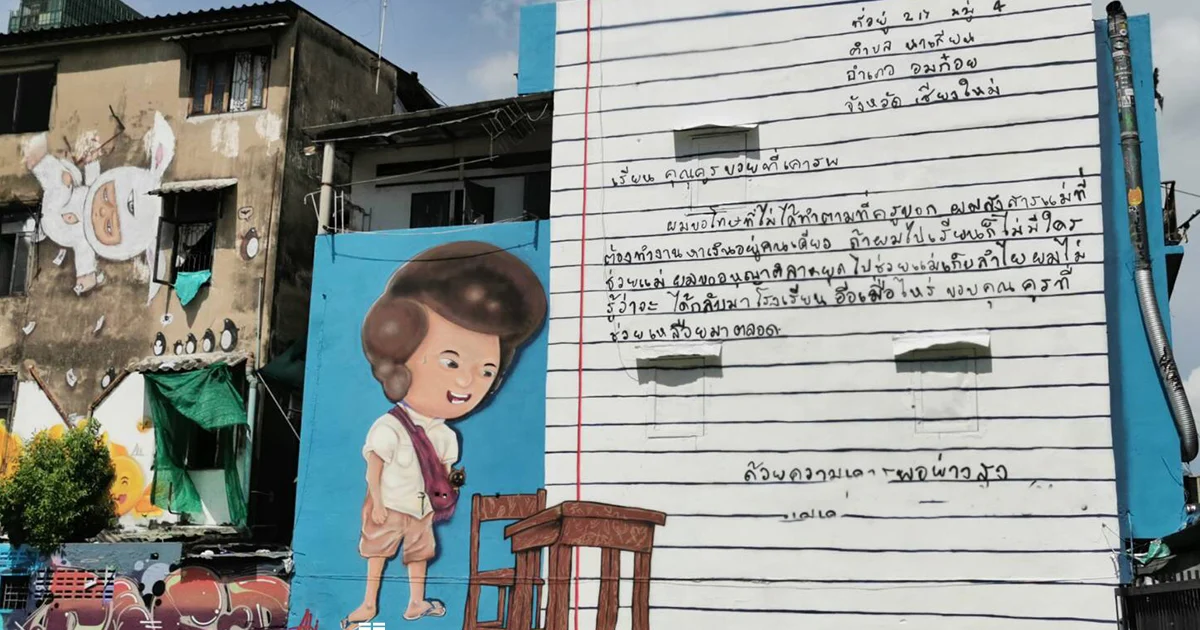 ที่อยู่ 217 หมู่ 4
ตำบล นาเกียน
อำเภอ อมก๋อย
จังหวัด เชียงใหม่
เรียน คุณครูบวยที่เคารพ
ผมขอโทษที่ไม่ได้ทำตามที่ครูบอก ผมสงสารแม่ที่
ต้องทำงานหาเงินอยู่คนเดียว ถ้าผมไปเรียนก็ไม่มีใคร
ช่วยแม่ ผมขออนุญาติลาหยุดไปช่วยแม่เก็บลำไย ผมไม่
รู้ว่าจะ ได้กลับมา โรงเรียน อีกเมื่อไหร่ ขอบคุณ คุรที่
ช่วยเหลือผมมาตลอด
ด้วยความเคารพอย่างสูง